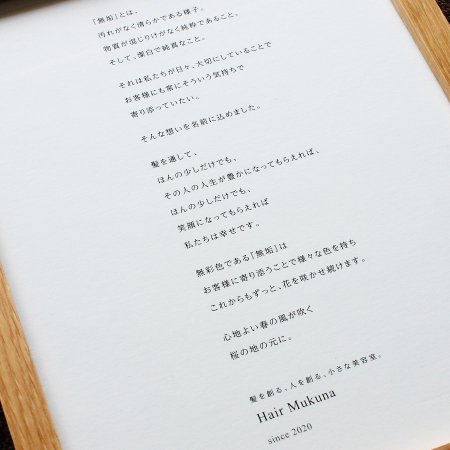 『無垢』とは、
汚れがなく清らかである様子。
物質が混じりけがなく純粋であること。
そして、潔白で純真なこと。
それは私たちが日々、大切にしていることで
お客様にも常にそういう気持ちで
寄り添っていたい。
そんな想いを名前に込めました。
髪を通して、
ほんの少しだけでも、
その人の人生が豊かになってもらえれば、
ほんの少しだけでも、
笑顔になってもらえれば
私たちは幸せです。
無彩色である『無垢』は
お客様に寄り添うことで様々な色を持ち
これからもずっと、花を咲かせ続けます。
心地よい春の風が吹く
桜の地の元に。
髪を創る、人を創る、小さな美容室。
Hair Mukuna
since 2020